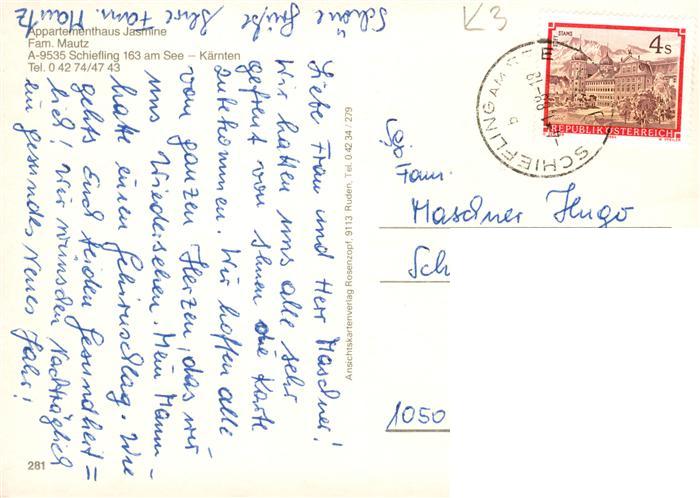 Appartementhaus Jasmine
Fam. Mautz
A-9535 Schiefling 163 am See – Kärnten
Tel. 0 42 74/47 43
Liebe Frau und Herr Maschner!
Wir hatten uns alle sehr
gefreut von Ihnen die Karte
zubekommen. Wir hoffen alle
vom ganzen Herzen, das wir
uns Wiedersehen. Mein Mann
hatte einen Gehirnschlag. Wie
gehts Euch beiden Gesundheit=
lich! Wir wünschen Nachträglich
ein gesundes Neues Jahr!
Schöne Grüße Ihre Fam. Mautz
281
Ansichtskartenverlag Rosenzopf, 9113 Ruden, Tel. 0 42 34 / 279
K3
STIFT STAMS
4 S
REPUBLIK ÖSTERREICH
SCHIEFLING AM SEE
Fam.
Maschner Hugo
Sch
1050